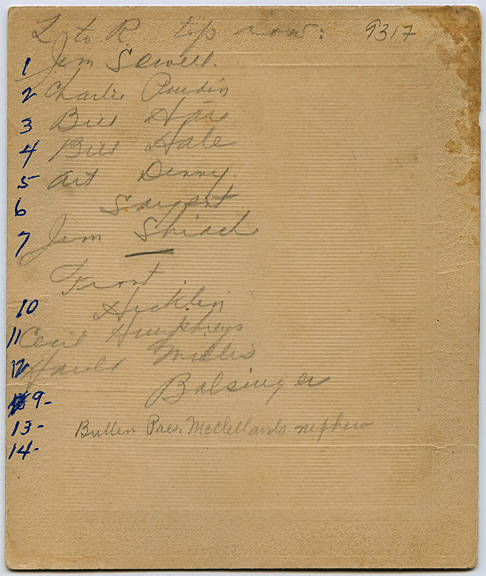 L to R top row: 9317
1 Jim Sewell.
2 Charlie Austin
3 Bill Hair
4 Bill Hale
5 Art Denny.
6 Sargent
7 Jim Shiach
Front
10 Hicklin
11 Cecil Humphreys
12 Harold Mills
9- Balsinger
13- Bullen Pres. McClellands nephew
14-